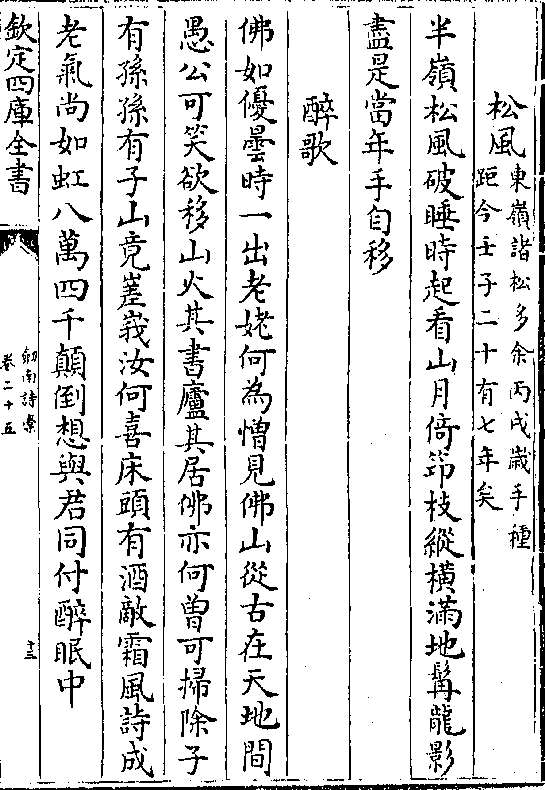 松風東嶺諸松多余丙戌歲手種
距今壬子二十有七年矣
半嶺松風破睡時起看山月倚笻枝縱橫滿地髯龍影
盡是當年手自移
醉歌
佛如優曇時一出老姥何為憎見佛山從古在天地間
愚公可笑欲移山火其書廬其居佛亦何曾可掃除子
有孫孫有子山竟嵳峩汝何喜床頭有酒敵霜風詩成
老氣尚如虹八萬四千顛倒想與君同付醉眠中
欽定四庫全書
劒南詩槀
卷二十五
十三